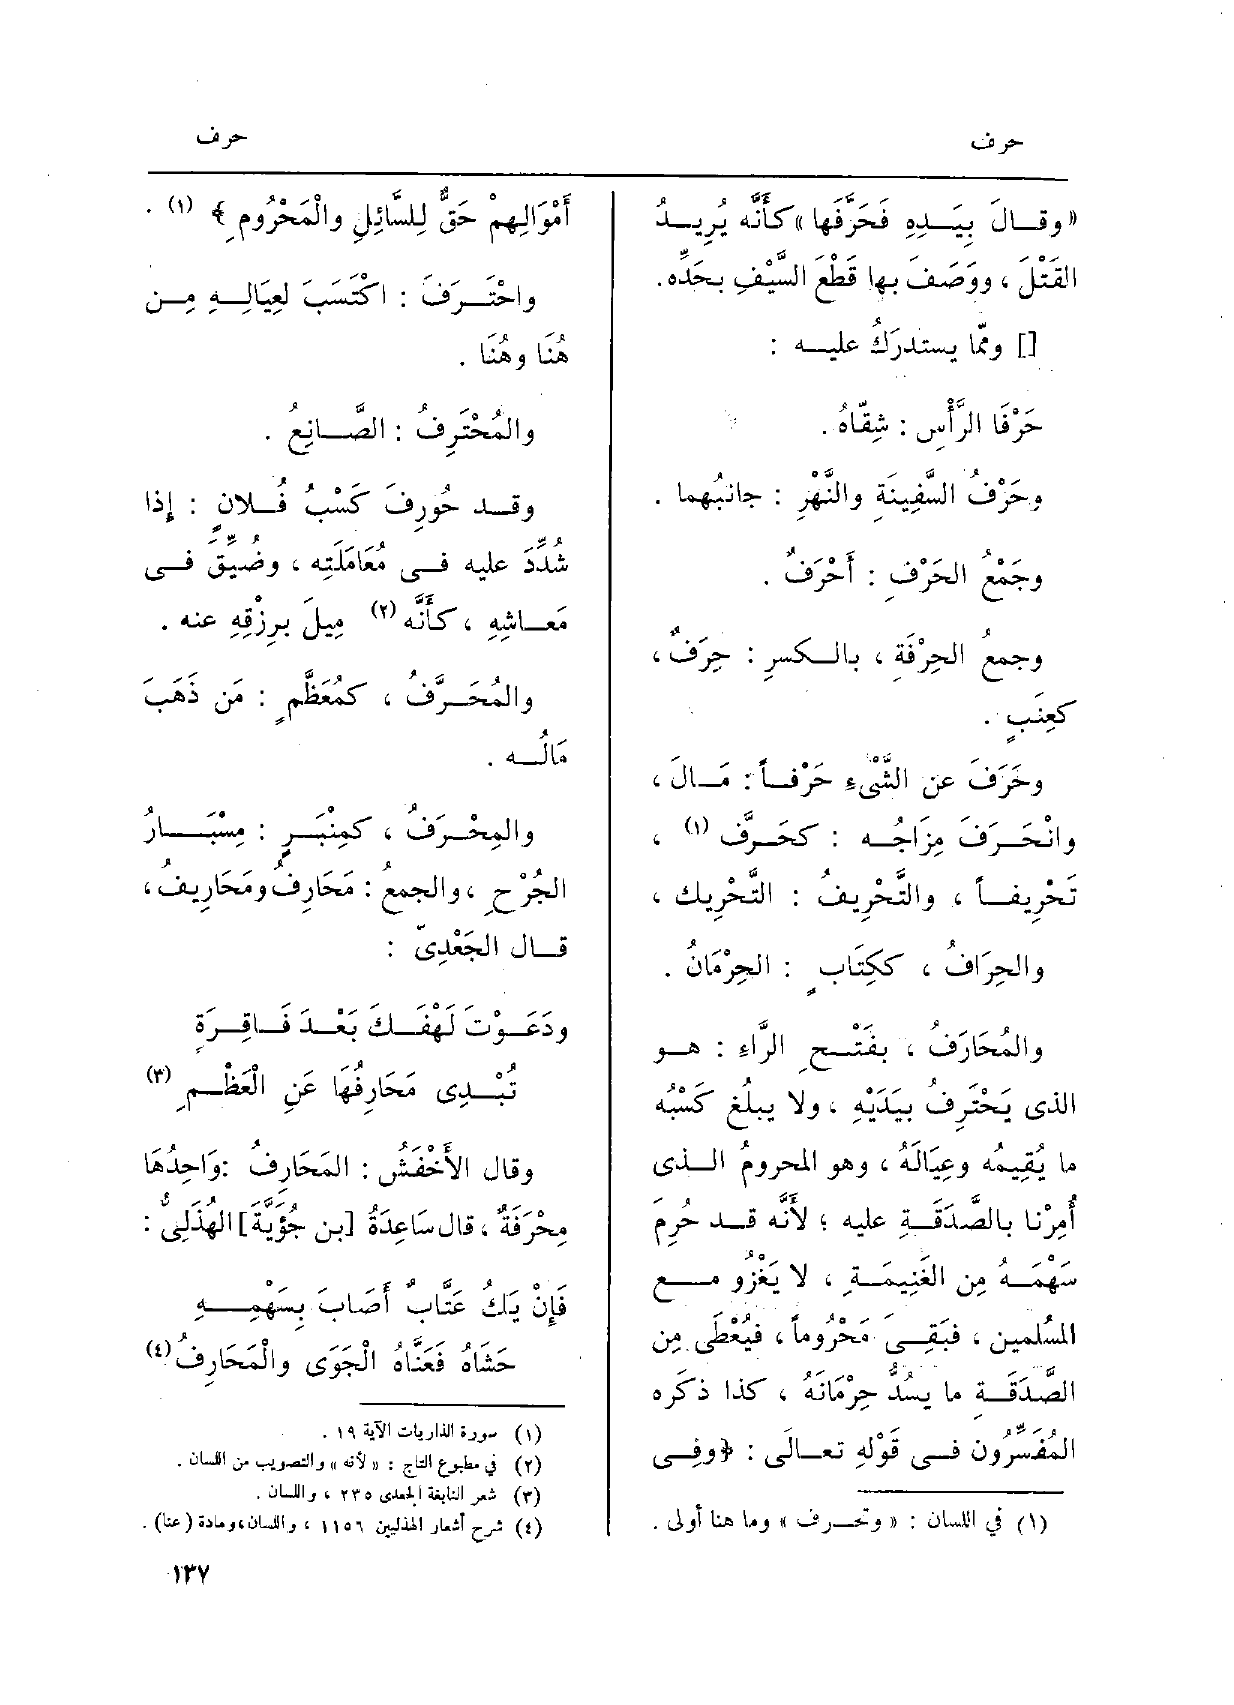 حرف
حرف
«وقـالَ بِيَـدِهِ فَحَرَّفَها» كَأَنَّه يُرِيـدُ
القَتْلَ ، ووَصَفَ بها قَطْعَ السَّيْفِ بحَدِّه.
[] وممّا يستدرَكُ عليـه :
حَرْفَا الرَّأْسِ : شِقّاهُ .
وحَرْفُ السَّفِينَةِ والنَّهْرِ : جانبُهما .
وجَمْعُ الحَرْفِ : أَحْرُفٌ .
وجمعُ الحِرْفَةِ ، بالـكسرِ : حِرَفٌ ،
كعِنَبٍ .
وحَرَفَ عن الشَّىْءِ حَرْفـاً : مَـالَ ،
وانْحَـرَفَ مِزَاجُـه : كحَـرَّف (١) ،
تَحْرِيفـاً ، والتَّحْرِيفُ : التَّحْرِيك ،
والحِرَافُ ، ككِتَابٍ : الحِرْمَانُ .
والمُحَارَفُ ، بفَتْـحِ الرَّاءِ : هـو
الذى يَحْتَرِفُ بيَدَيْهِ ، ولا يبلُغ كَسْبُه
ما يُقِيمُه وعِيَالَهُ ، وهو المحرومُ الـذى
أُمِرْنا بالصَّدَقَـةِ عليه ؛ لأَنَّه قـد حُرِمَ
سَهْمَـهُ مِن الغَنِيمَـةِ ، لا يَغْزُو مـع
المُسلمين ، فبَقِـىَ مَحْرُوماً ، فيُعْطَى مِن
الصَّدَقَـةِ ما يسُدُّ حِرْمَانَهُ ، كذا ذكَره
المُفَسِّرُون فـى قَوْلِهِ تعـالَى : ﴿وفِـى
(١) فى اللسان : « وتحـرف » وما هنا أولى .
أَمْوَالِهِمْ حَقٌّ لِلسَّائِلِ والْمَحْرُومِ ﴾ (١) .
واحْتَـرَفَ : اكْتَسَبَ لعِيَالِـهِ مِـن
هُنَا وهُنَا .
والمُحْتَرِفُ : الصَّـانِعُ .
وقـد حُورِفَ كَسْبُ فُـلانٍ : إِذا
شُدِّدَ عليه فـى مُعَامَلَتِه ، وضُيِّقَ فـى
مَعـاشِهِ ، كأَنَّه (٢) مِيلَ برِزْقِهِ عنه .
والمُحَـرَّفُ ، كمُعَظَّمٍ : مَن ذَهَبَ
مَالُـه .
والمِحْـرَفُ ، كمِنْبَـرٍ : مِسْبَـارُ
الجُرْحِ ، والجمعُ : مَحَارِفُ ومَحَارِيفُ ،
قـال الجَعْدِىّ :
ودَعَـوْتَ لَهْفَـكَ بَعْـدَ فَـاقِـرَةٍ
تُبْـدِى مَحَارِفُهَا عَنِ الْعَظْـمِ (٣)
وقال الأَخْفَشُ : المَحَارِفُ :وَاحِدُهَا
مِحْرَفَةٌ ، قال سَاعِدَةُ [بن جُؤَيَّةَ] الهُذَلِىُّ :
فَإِنْ يَكُ عَتَّابٌ أَصَابَ بِسَهْمِـهِ
حَشَاهُ فَعَنَّاهُ الْجَوَى والْمَحَارِفُ (٤)
(١) سورة الذاريات الآية ١٩ .
(٢) فى مطبوع التاج : « لأنه » والتصويب من اللسان .
(٣) شعر النابغة الجعدى ٢٣٥ ، واللسان .
(٤) شرح أشعار الهذليين ١١٥٦ ، واللسان، ومادة (عنا) .
١٣٧